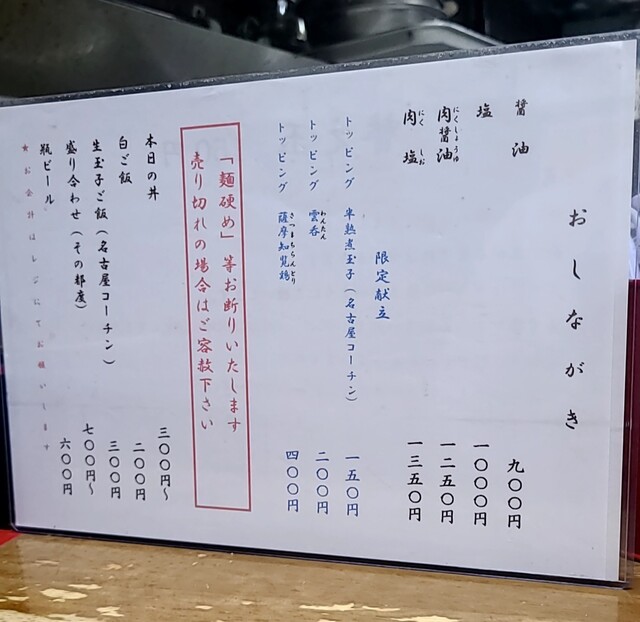 おしながき
醤油 九〇〇円
塩 一〇〇〇円
肉醤油 一二五〇円
にくしょうゆ
肉塩 一三五〇円
にくしお
限定献立
トッピング 半熟煮玉子(名古屋コーチン) 一五〇円
トッピング 雲呑 二〇〇円
わんたん
トッピング 薩摩知覧鶏 四〇〇円
さつまちらんどり
「麺硬め」等お断りいたします
売り切れの場合はご容赦下さい
本日の丼 三〇〇円〜
白ご飯 二〇〇円
生玉子ご飯(名古屋コーチン) 三〇〇円
盛り合わせ(その都度) 七〇〇円〜
瓶ビール 六〇〇円
★お会計はレジにてお願いします